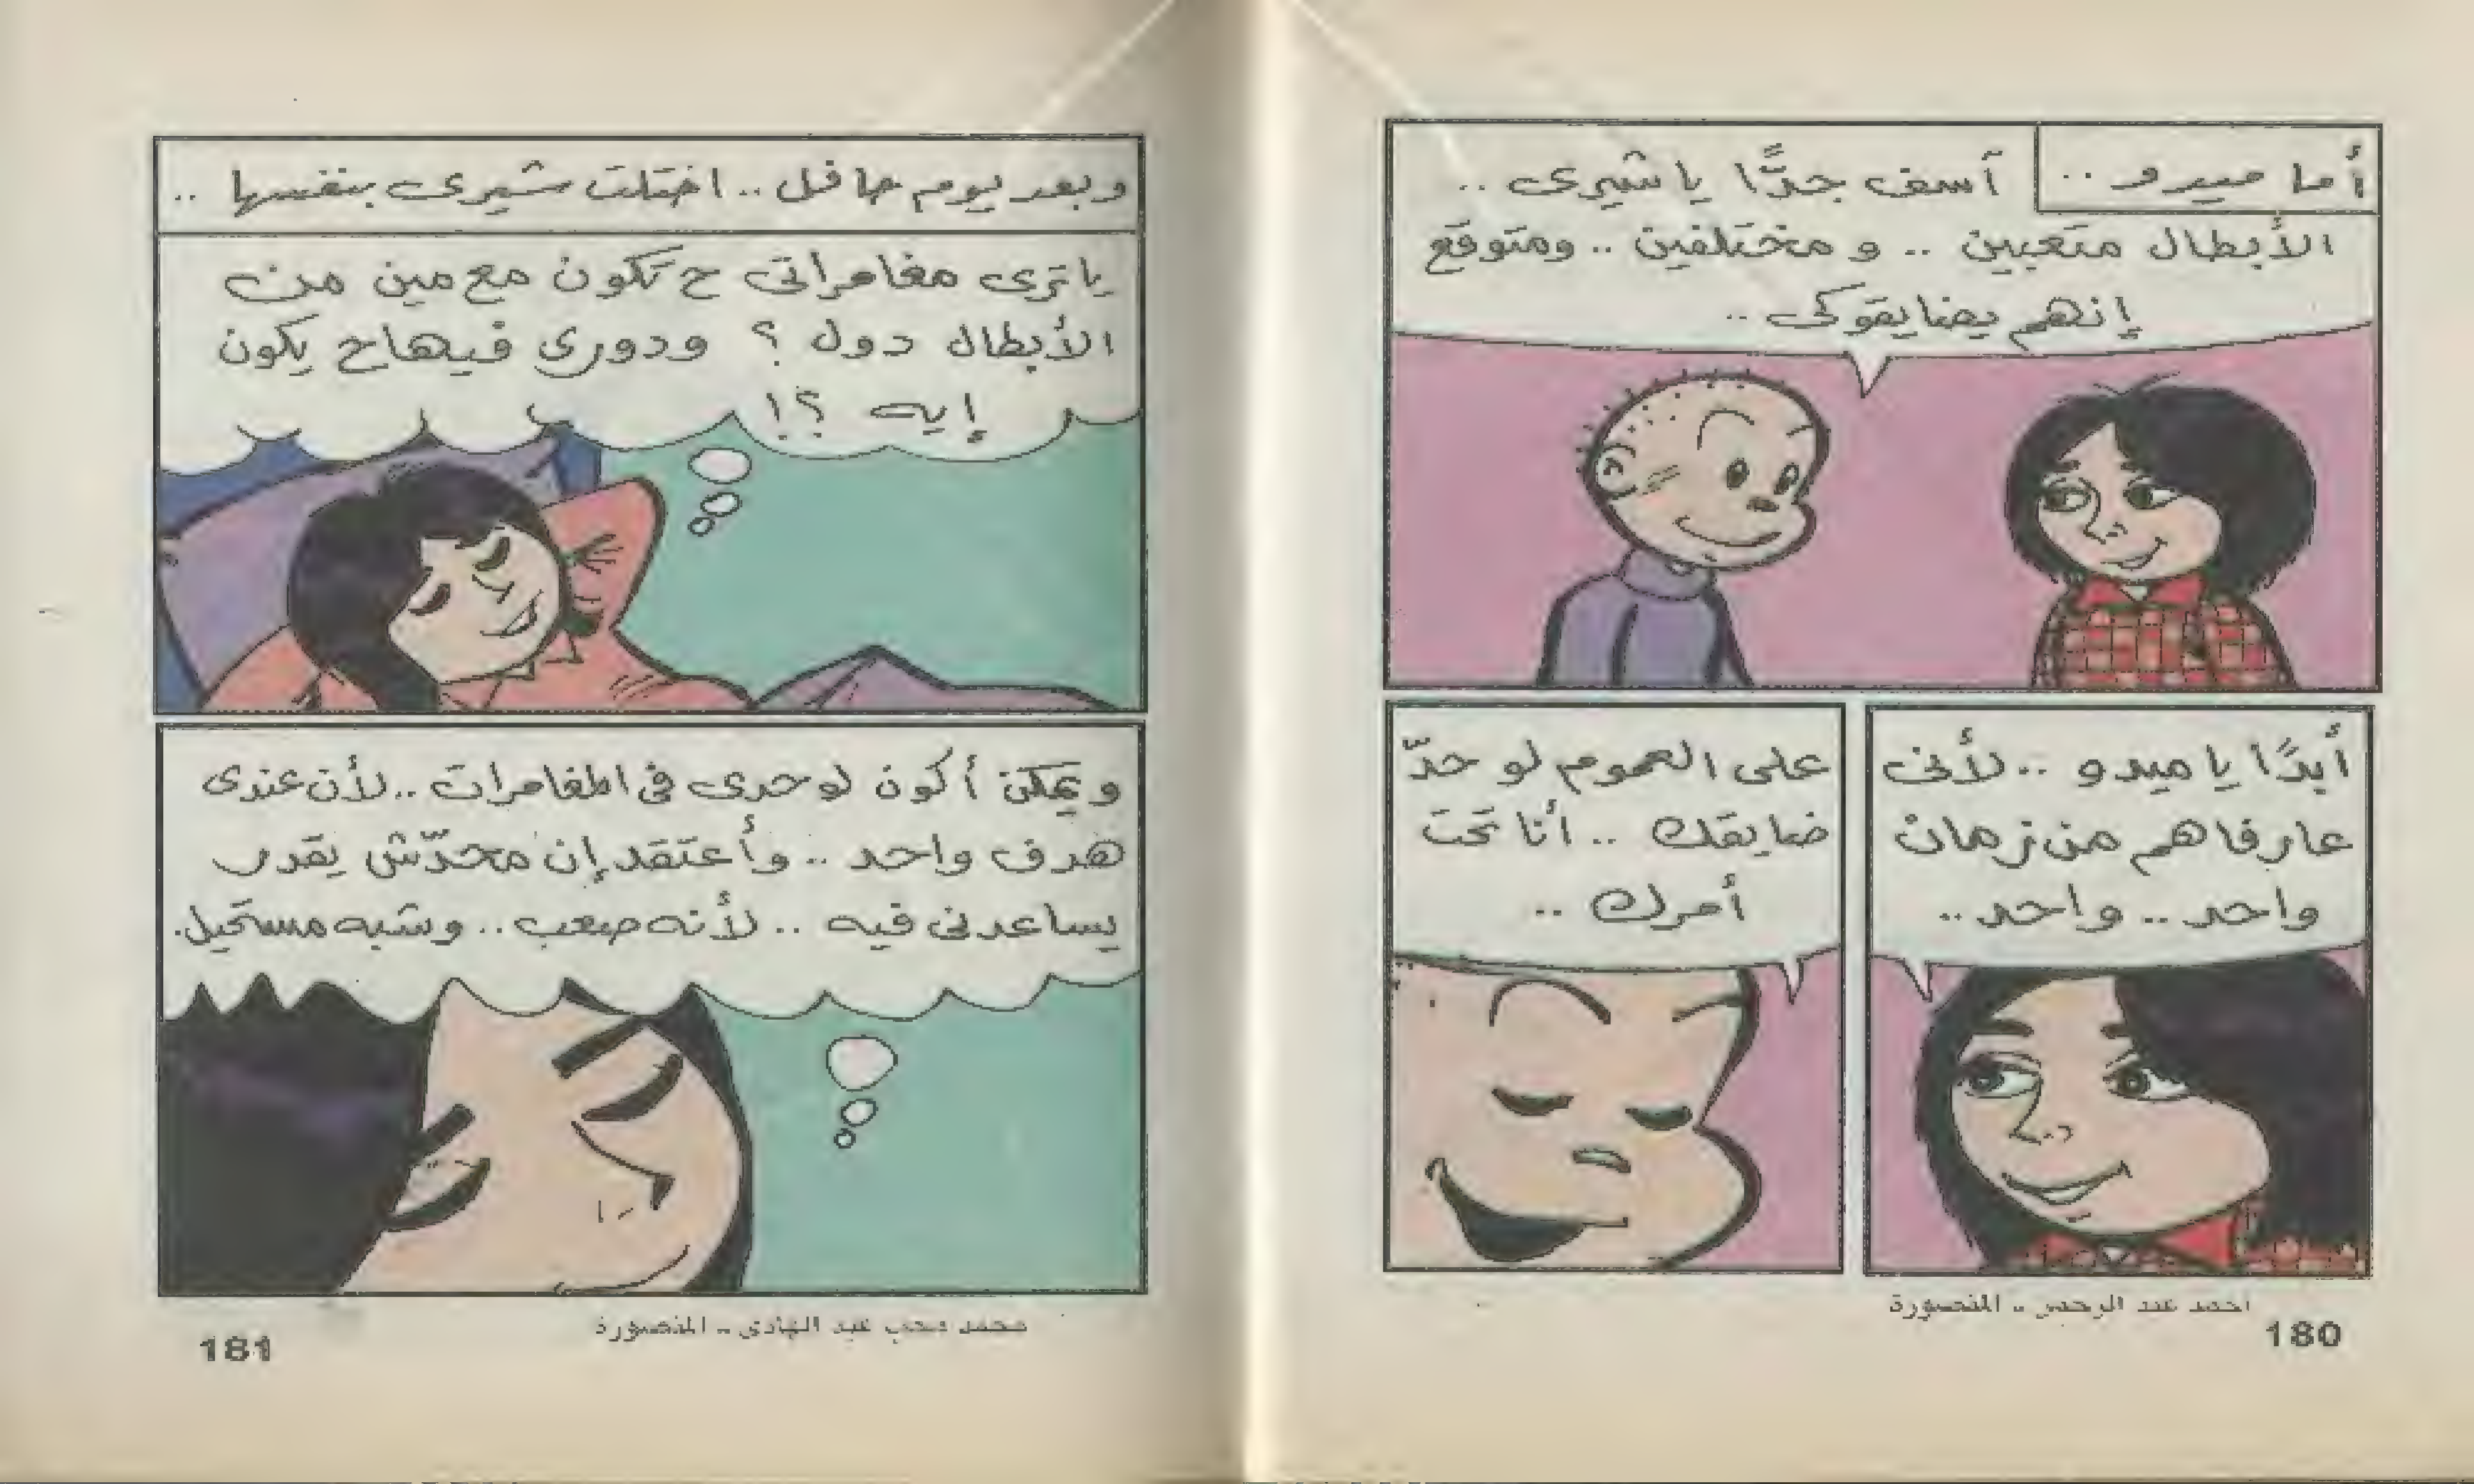 أما ميدو ..
آسف جدًّا يا شيرى ..
الأبطال متعبين .. و مختلفين .. ومتوقع
إنهم يضايقوكى ..
أبدًا يا ميدو .. لأنى
عارفاهم من زمان
واحد .. واحد ..
على العموم لو حدّ
ضايقك .. أنا تحت
أمرك ..
احمد عبد الرحمن - المنصورة
180
وبعد يوم حافل .. اختلت شيرى بنفسها ..
ياترى مغامراتى ح تكون مع مين من
الأبطال دول ؟ ودورى فيهاح يكون
إيه ؟!
ويمكن أكون لوحدى فى المغامرات .. لأن عندى
هدف واحد .. وأعتقد إن محدّش يقدر
يساعدنى فيه .. لأنه صعب .. وشبه مستحيل.
محمد محب عبد الهادى - المنصورة
181